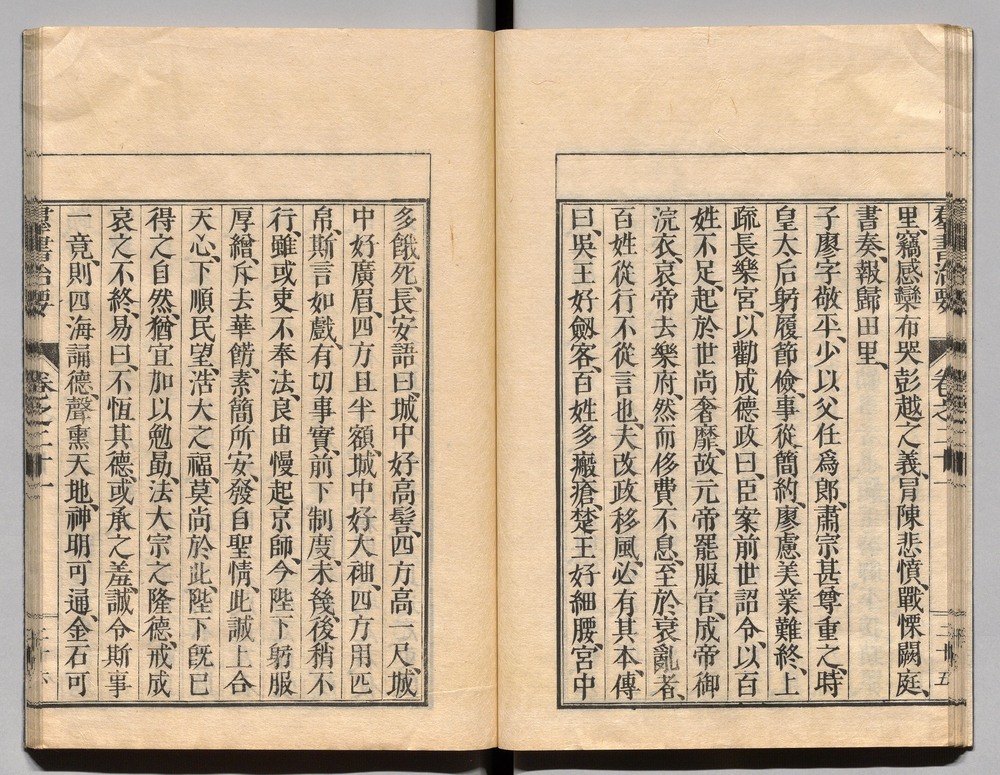 里、竊感欒布哭彭越之義、冐陳悲憤、戰慄闕庭、
書奏、報歸田里、
子廖、字敬平、少以父任爲郎、肅宗甚尊重之、時
皇太后躬履節儉、事從簡約、廖慮美業難終、上
疏長樂宮、以勸成德政曰、臣案前世詔令、以百
姓不足、起於世尚奢靡、故元帝罷服官、成帝御
浣衣、哀帝去樂府、然而侈費不息、至於衰亂者、
百姓從行不從言也、夫改政移風、必有其本、傳
曰、吳王好劔客、百姓多瘢瘡、楚王好細腰、宮中
多餓死、長安語曰、城中好高髻、四方高一尺、城
中好廣眉、四方且半額、城中好大袖、四方用匹
帛、斯言如戲、有切事實、前下制度、未幾、後稍不
行、雖或吏不奉法、良由慢起京師、今陛下躬服
厚繒、斥去華餝、素簡所安、發自聖情、此誠上合
天心、下順民望、浩大之福、莫尚於此、陛下旣已
得之自然、猶宜加以勉勗、法大宗之隆德、戒成
哀之不終、易曰、不恆其德、或承之羞、誠令斯事
一竟、則四海誦德、聲熏天地、神明可通、金石可
羣書治要 卷之二十一